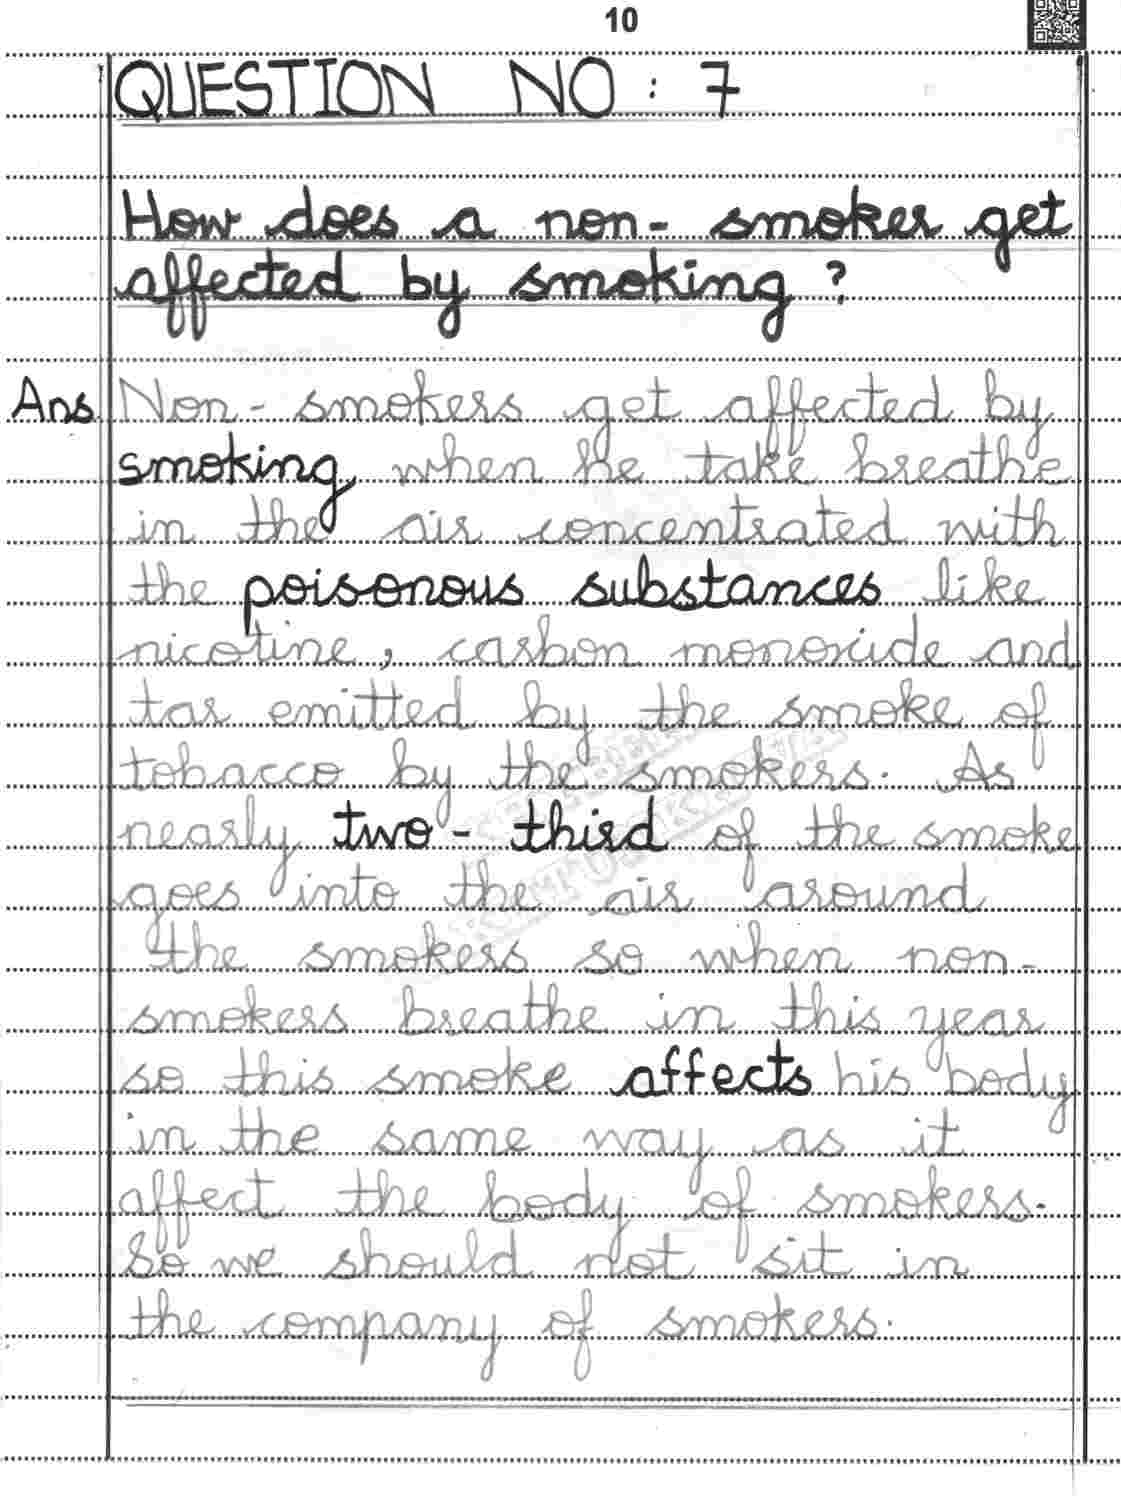 10
QUESTION NO : 7
How does a non- smoker get
affected by smoking ?
Ans. Non- smokers get affected by
smoking when he take breathe
in the air concentrated with
the poisonous substances like
nicotine, carbon monoxide and
tar emitted by the smoke of
tobacco by the smokers. As
nearly two- third of the smoke
goes into the air around
the smokers so when non-
smokers breathe in this year
so this smoke affects his body
in the same way as it
affect the body of smokers.
So we should not sit in
the company of smokers.